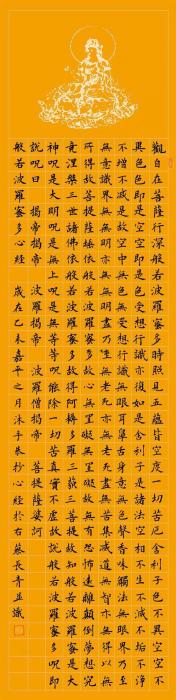 觀自在菩薩行深般若波羅蜜多時照見五蘊皆空度一切苦厄舍利子色不異空空不
異色色即是空空即是色受想行識亦復如是舍利子是諸法空相不生不滅不垢不淨
不增不減是故空中無色無受想行識無眼耳鼻舌身意無色聲香味觸法無眼界乃至
無意識界無無明亦無無明盡乃至無老死亦無老死盡無苦集滅道無智亦無得以無
所得故菩提薩埵依般若波羅蜜多故心無罣礙無罣礙故無有恐怖遠離顛倒夢想究
竟涅槃三世諸佛依般若波羅蜜多故得阿耨多羅三藐三菩提故知般若波羅蜜多是大
神呪是大明呪是無上呪是無等等呪能除一切苦真實不虛故說般若波羅蜜多呪即
說呪曰 揭帝揭帝 波羅揭帝 波羅僧揭帝 菩提薩婆訶
般若波羅蜜多心經 歲在乙未嘉平之月沐手恭抄心經於右蔡長青並識